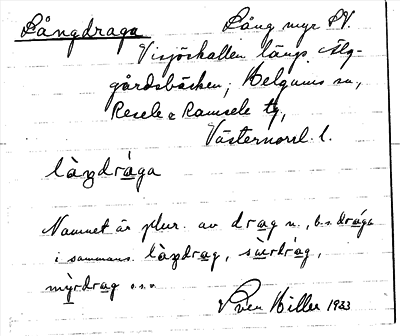 Långdraga Lång myr SV.
Visjöskallen längs Älg-
gårdsbäcken; Helgums sn,
Resele o Ramsele tg,
Västernorrl. l.
làŋdràga
Namnet är plur. av drag n., b.s. dràga
i sammans. làŋdrag, sùrdràg,
mỳrdrag o.s.v.
Sven Hiller 1933